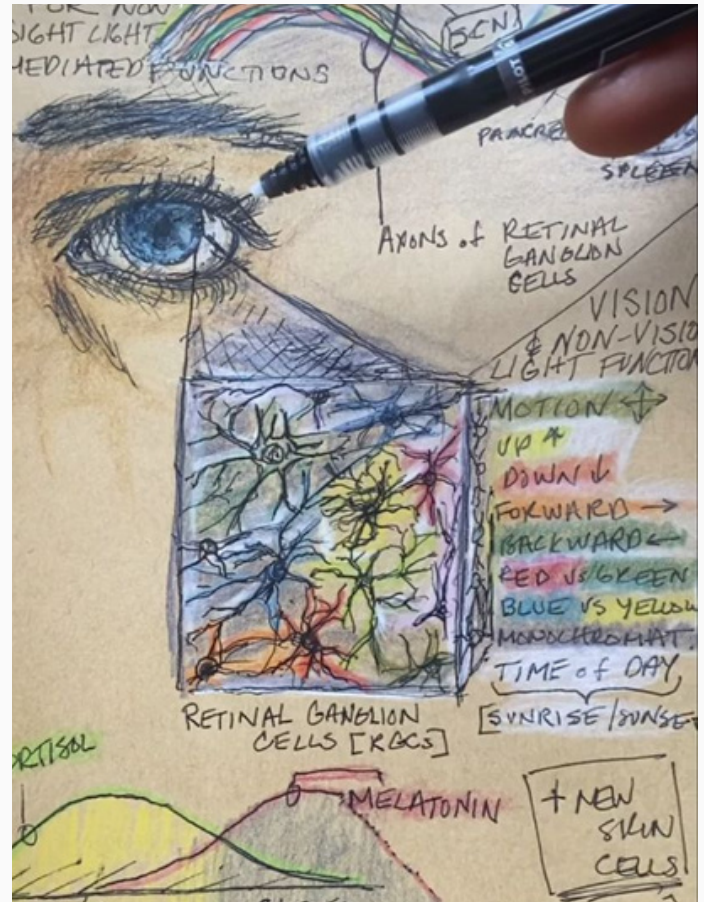 FOR NON
SIGHT LIGHT
MEDIATED FUNCTIONS
SCN
PILOT
PANCRE
SPLEEN
AXONS of RETINAL
GANGLION
CELLS
VISION
& NON-VISIO
LIGHT FUNCTION
MOTION
UP
DOWN
FORWARD
BACKWARD
RED VS GREEN
BLUE VS YELLOW
MONOCHROMAT.
TIME of DAY
[SUNRISE/SUNSE
RETINAL GANGLION
CELLS [RGCS]
ORTISOL
MELATONIN
+ NEW
SKIN
CELLS